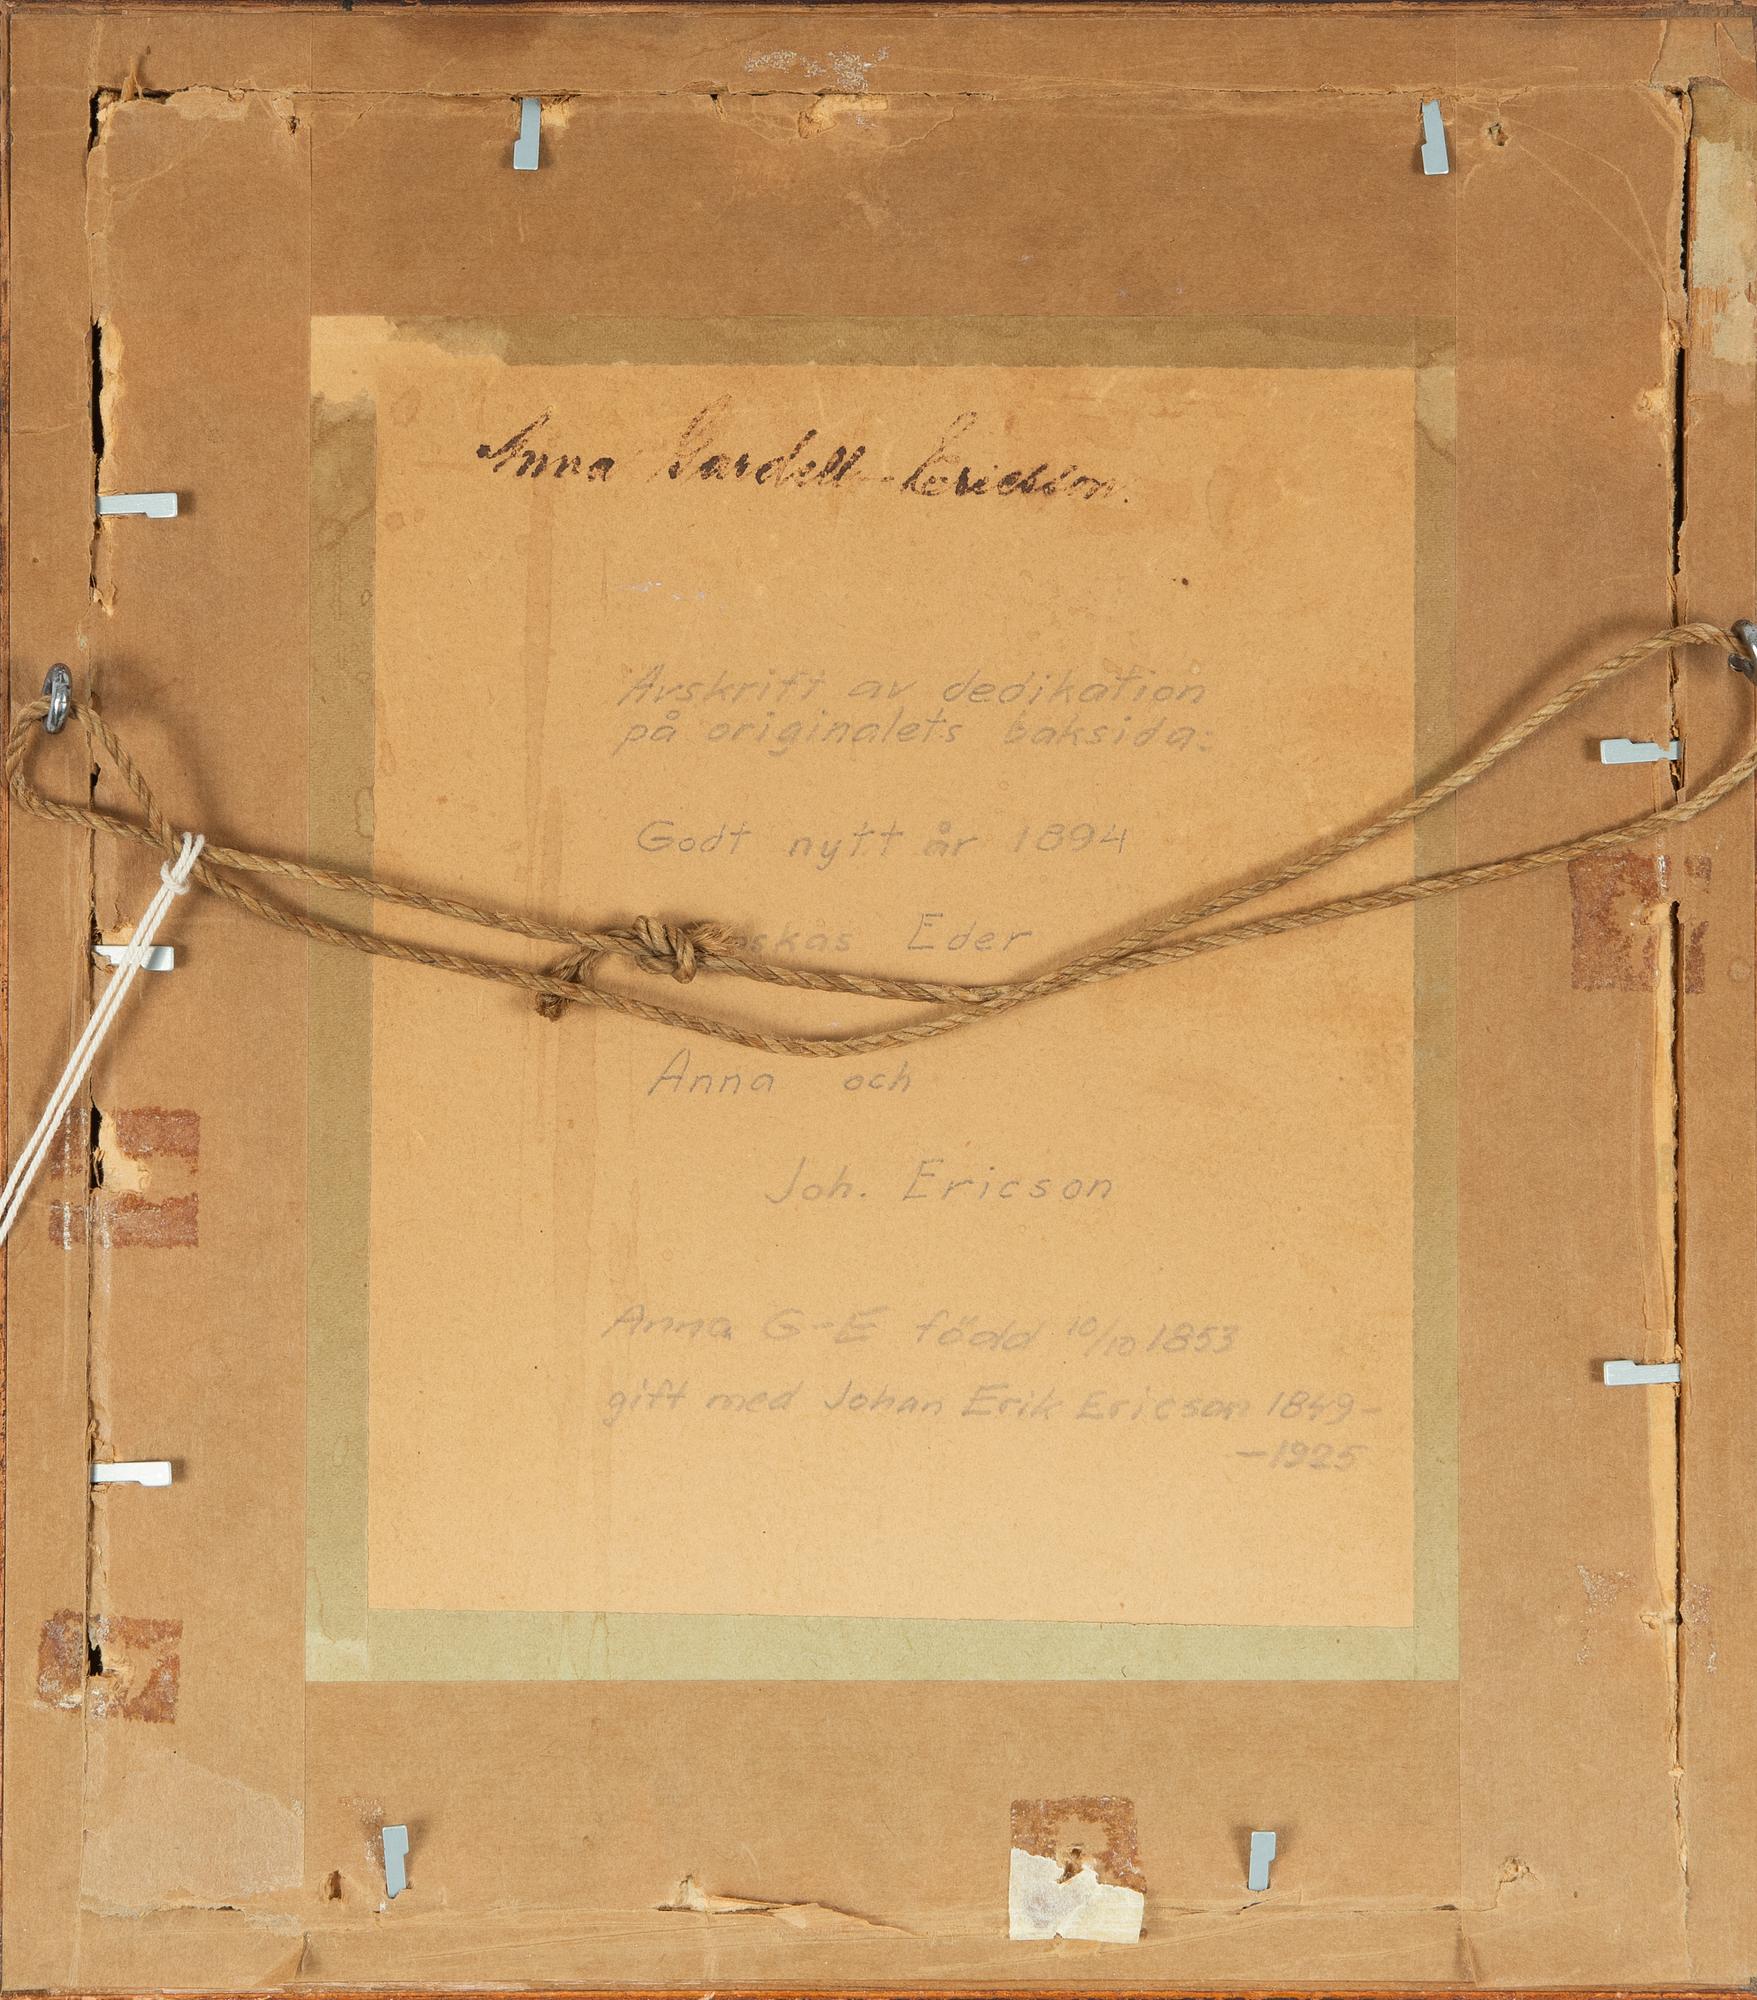 Anna Gardell-Ericson.
Avskrift av dedikation
på originalets baksida:
Godt nytt år 1894
Eder
Anna och
Joh. Ericson
Anna G-E född 10/10 1853
gift med Johan Erik Ericson 1849-
-1925